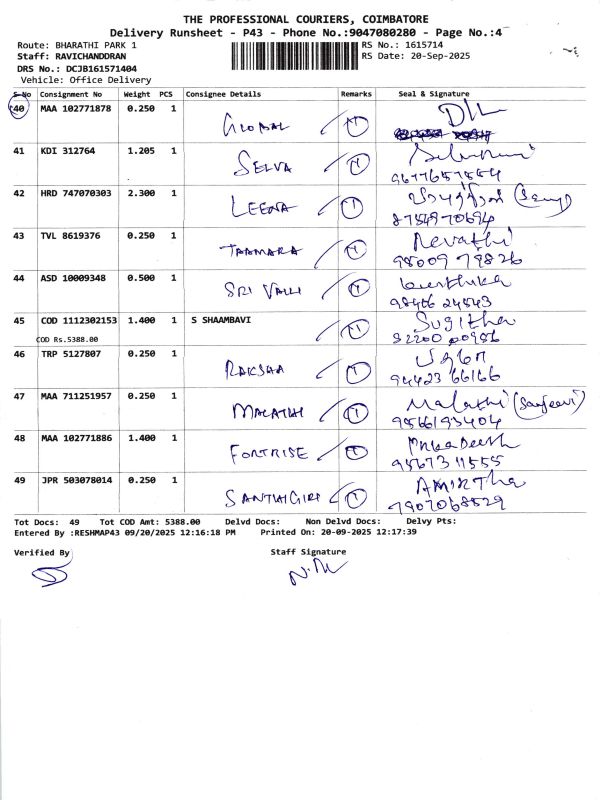 THE PROFESSIONAL COURIERS, COIMBATORE
Delivery Runsheet - P43 - Phone No.:9047080280 - Page No.:4
Route: BHARATHI PARK 1 RS No.: 1615714
Staff: RAVICHANDDRAN RS Date: 20-Sep-2025
DRS No.: DCJB161571404
Vehicle: Office Delivery
S No Consignment No Weight PCS Consignee Details Remarks Seal & Signature
40 MAA 102771878 0.250 1 GLOBAL
41 KDI 312764 1.205 1 SELVA
9677657554
42 HRD 747070303 2.300 1 LEENA
8754970694
43 TVL 8619376 0.250 1 TAAMARA Revathi
98009 79826
44 ASD 10009348 0.500 1 SRI VALLI
98466 24543
45 COD 1112302153 1.400 1 S SHAAMBAVI Sugitha
COD Rs.5388.00
46 TRP 5127807 0.250 1 RAKSHA
94423 66166
47 MAA 711251957 0.250 1 MALATHI Malathi (Sanjeevi)
9566193404
48 MAA 102771886 1.400 1 FORTRISE
9567311555
49 JPR 503078014 0.250 1 SANTHIGIRI AMIRTha
7907068529
Tot Docs: 49 Tot COD Amt: 5388.00 Delvd Docs: Non Delvd Docs: Delvy Pts:
Entered By :RESHMAP43 09/20/2025 12:16:18 PM Printed On: 20-09-2025 12:17:39
Verified By Staff Signature